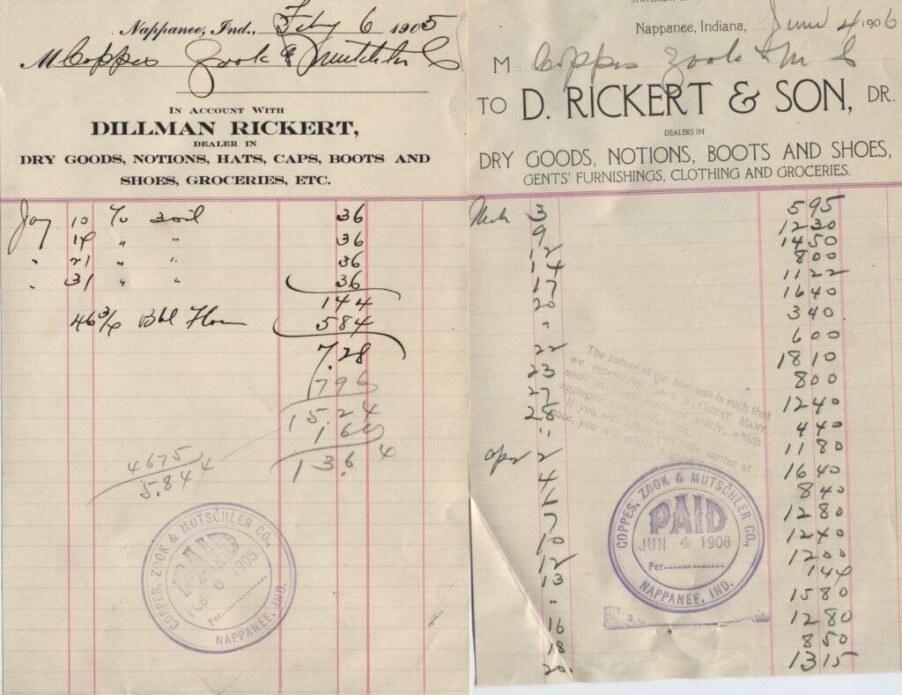 Nappanee, Ind., Feby 6 1905
M Coppes Zook & Mutschler Co
IN ACCOUNT WITH
DILLMAN RICKERT,
DEALER IN
DRY GOODS, NOTIONS, HATS, CAPS, BOOTS AND
SHOES, GROCERIES, ETC.
Jay 10 To 3 oil 36
14 " " 36
" 21 " " 36
" 31 " " 36
144
46 3/4 Bbl Flour 584
7.28
796
15 24
1 60
13.6 4
4675
5.844
COPPES, ZOOK & MUTSCHLER CO.,
PAID
FEB 6 1905
Per
NAPPANEE, IND.
Nappanee, Indiana, June 4 1906
M Coppes Zook & M Co
TO D. RICKERT & SON, DR.
DEALERS IN
DRY GOODS, NOTIONS, BOOTS AND SHOES,
GENTS' FURNISHINGS, CLOTHING AND GROCERIES.
Mch 3 595
9 1230
12 1450
14 800
17 1122
20 1640
" 340
22 600
23 1810
27 800
28 1240
" 440
Apr 2 1180
4 1640
6 840
7 1280
10 1240
12 1200
13 144
" 1580
16 1280
18 850
20 1315
The nature of our business is such that
we necessarily have a GREAT MANY
small accounts scattered widely, which
aggregate a
If you will this matter at
once, you will confer a great
COPPES, ZOOK & MUTSCHLER CO.,
PAID
JUN 4 1906
Per
NAPPANEE, IND.